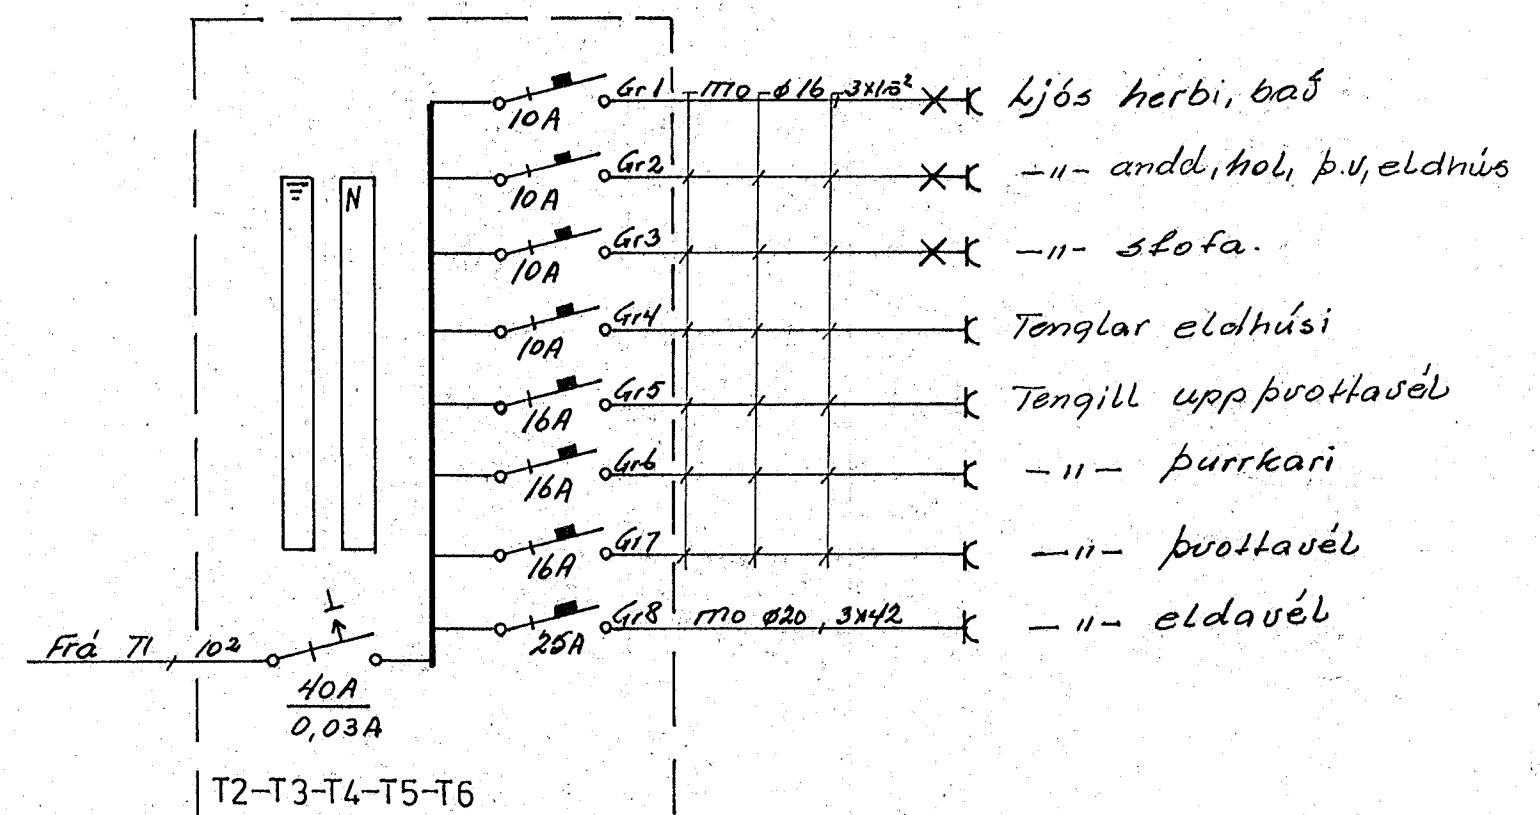 Gr1 mo ø16 3x1.5² Ljós herbi, bað
10A
Gr2 -"- andd, hol, þ.v, eldhús
10A
N
Gr3 -"- stofa.
10A
Gr4 Tenglar eldhúsi
10A
Gr5 Tengill uppþvottavél
16A
Gr6 -"- þurrkari
16A
Gr7 -"- þvottavél
16A
Gr8 mo ø20, 3x4² -"- eldavél
25A
Frá T1, 10²
40A
0,03A
T2-T3-T4-T5-T6